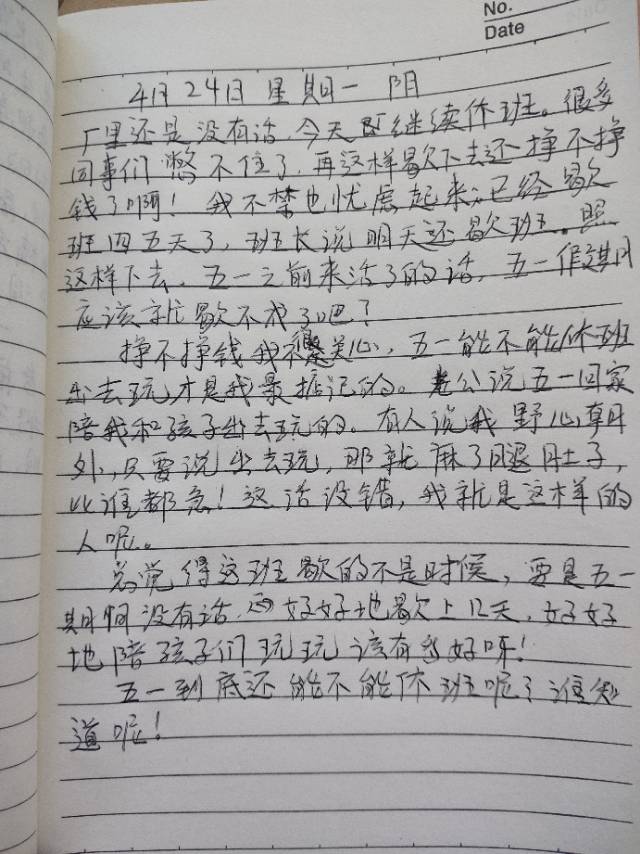 No.
Date
4月24日 星期一 阴
厂里还是没有活,今天继续休班。很多
同事们憋不住了,再这样歇下去还挣不挣
钱了啊!我不禁也忧虑起来,已经歇
班四五天了,班长说明天还歇班。照
这样下去,五一之前来活了的话,五一假期
应该就歇不成了吧?
挣不挣钱我不关心,五一能不能休班
出去玩才是我最惦记的。老公说五一回家
陪我和孩子出去玩的。有人说我野心朝
外,只要说出去玩,那就麻了腿肚子,
比谁都急!这话没错,我就是这样的
人呢。
总觉得这班歇的不是时候,要是五一
期间没有活,好好地歇上几天,好好
地陪孩子们玩玩该有多好呀!
五一到底还能不能休班呢?谁知
道呢!